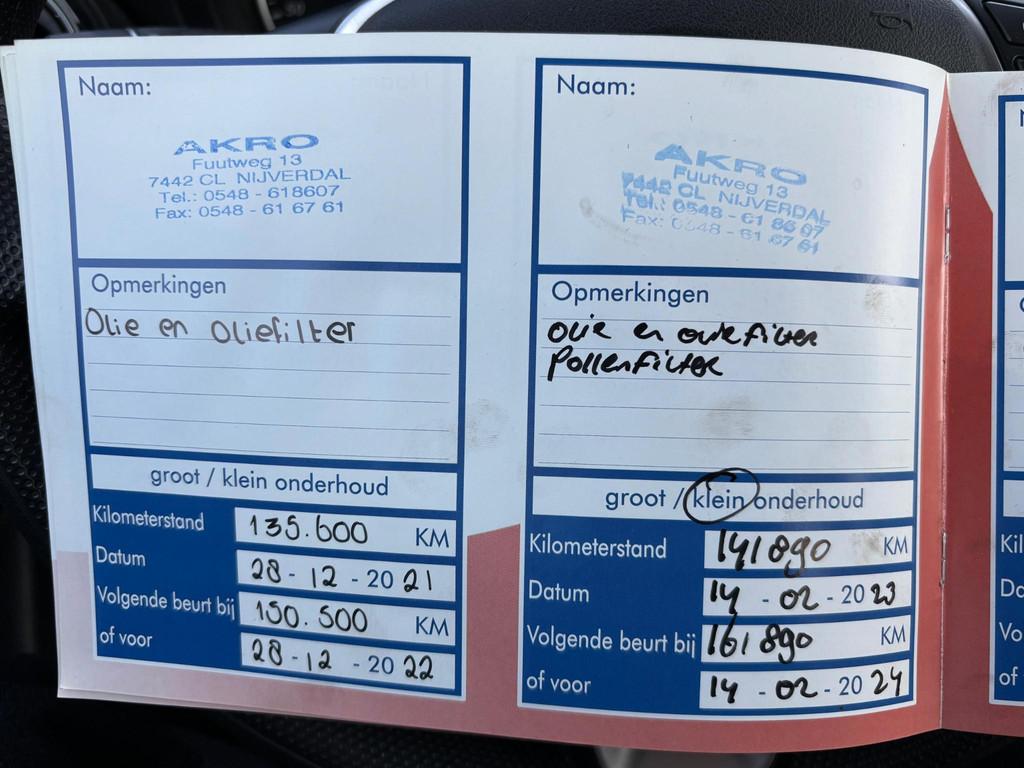 Naam:
AKRO
Fuutweg 13
7442 CL NIJVERDAL
Tel.: 0548 - 618607
Fax: 0548 - 61 67 61
Opmerkingen
Olie en oliefilter
groot / klein onderhoud
Kilometerstand 135.600 KM
Datum 28 - 12 - 20 21
Volgende beurt bij 150.500 KM
of voor 28 - 12 - 20 22
Naam:
AKRO
Fuutweg 13
7442 CL NIJVERDAL
Tel.: 0548 - 61 86 07
Fax: 0548 - 61 67 61
Opmerkingen
olie en oliefilter
Pollenfilter
groot / klein onderhoud
Kilometerstand 141890 KM
Datum 14 - 02 - 20 23
Volgende beurt bij 161890 KM
of voor 14 - 02 - 20 24
Kil
Do
Vo
of